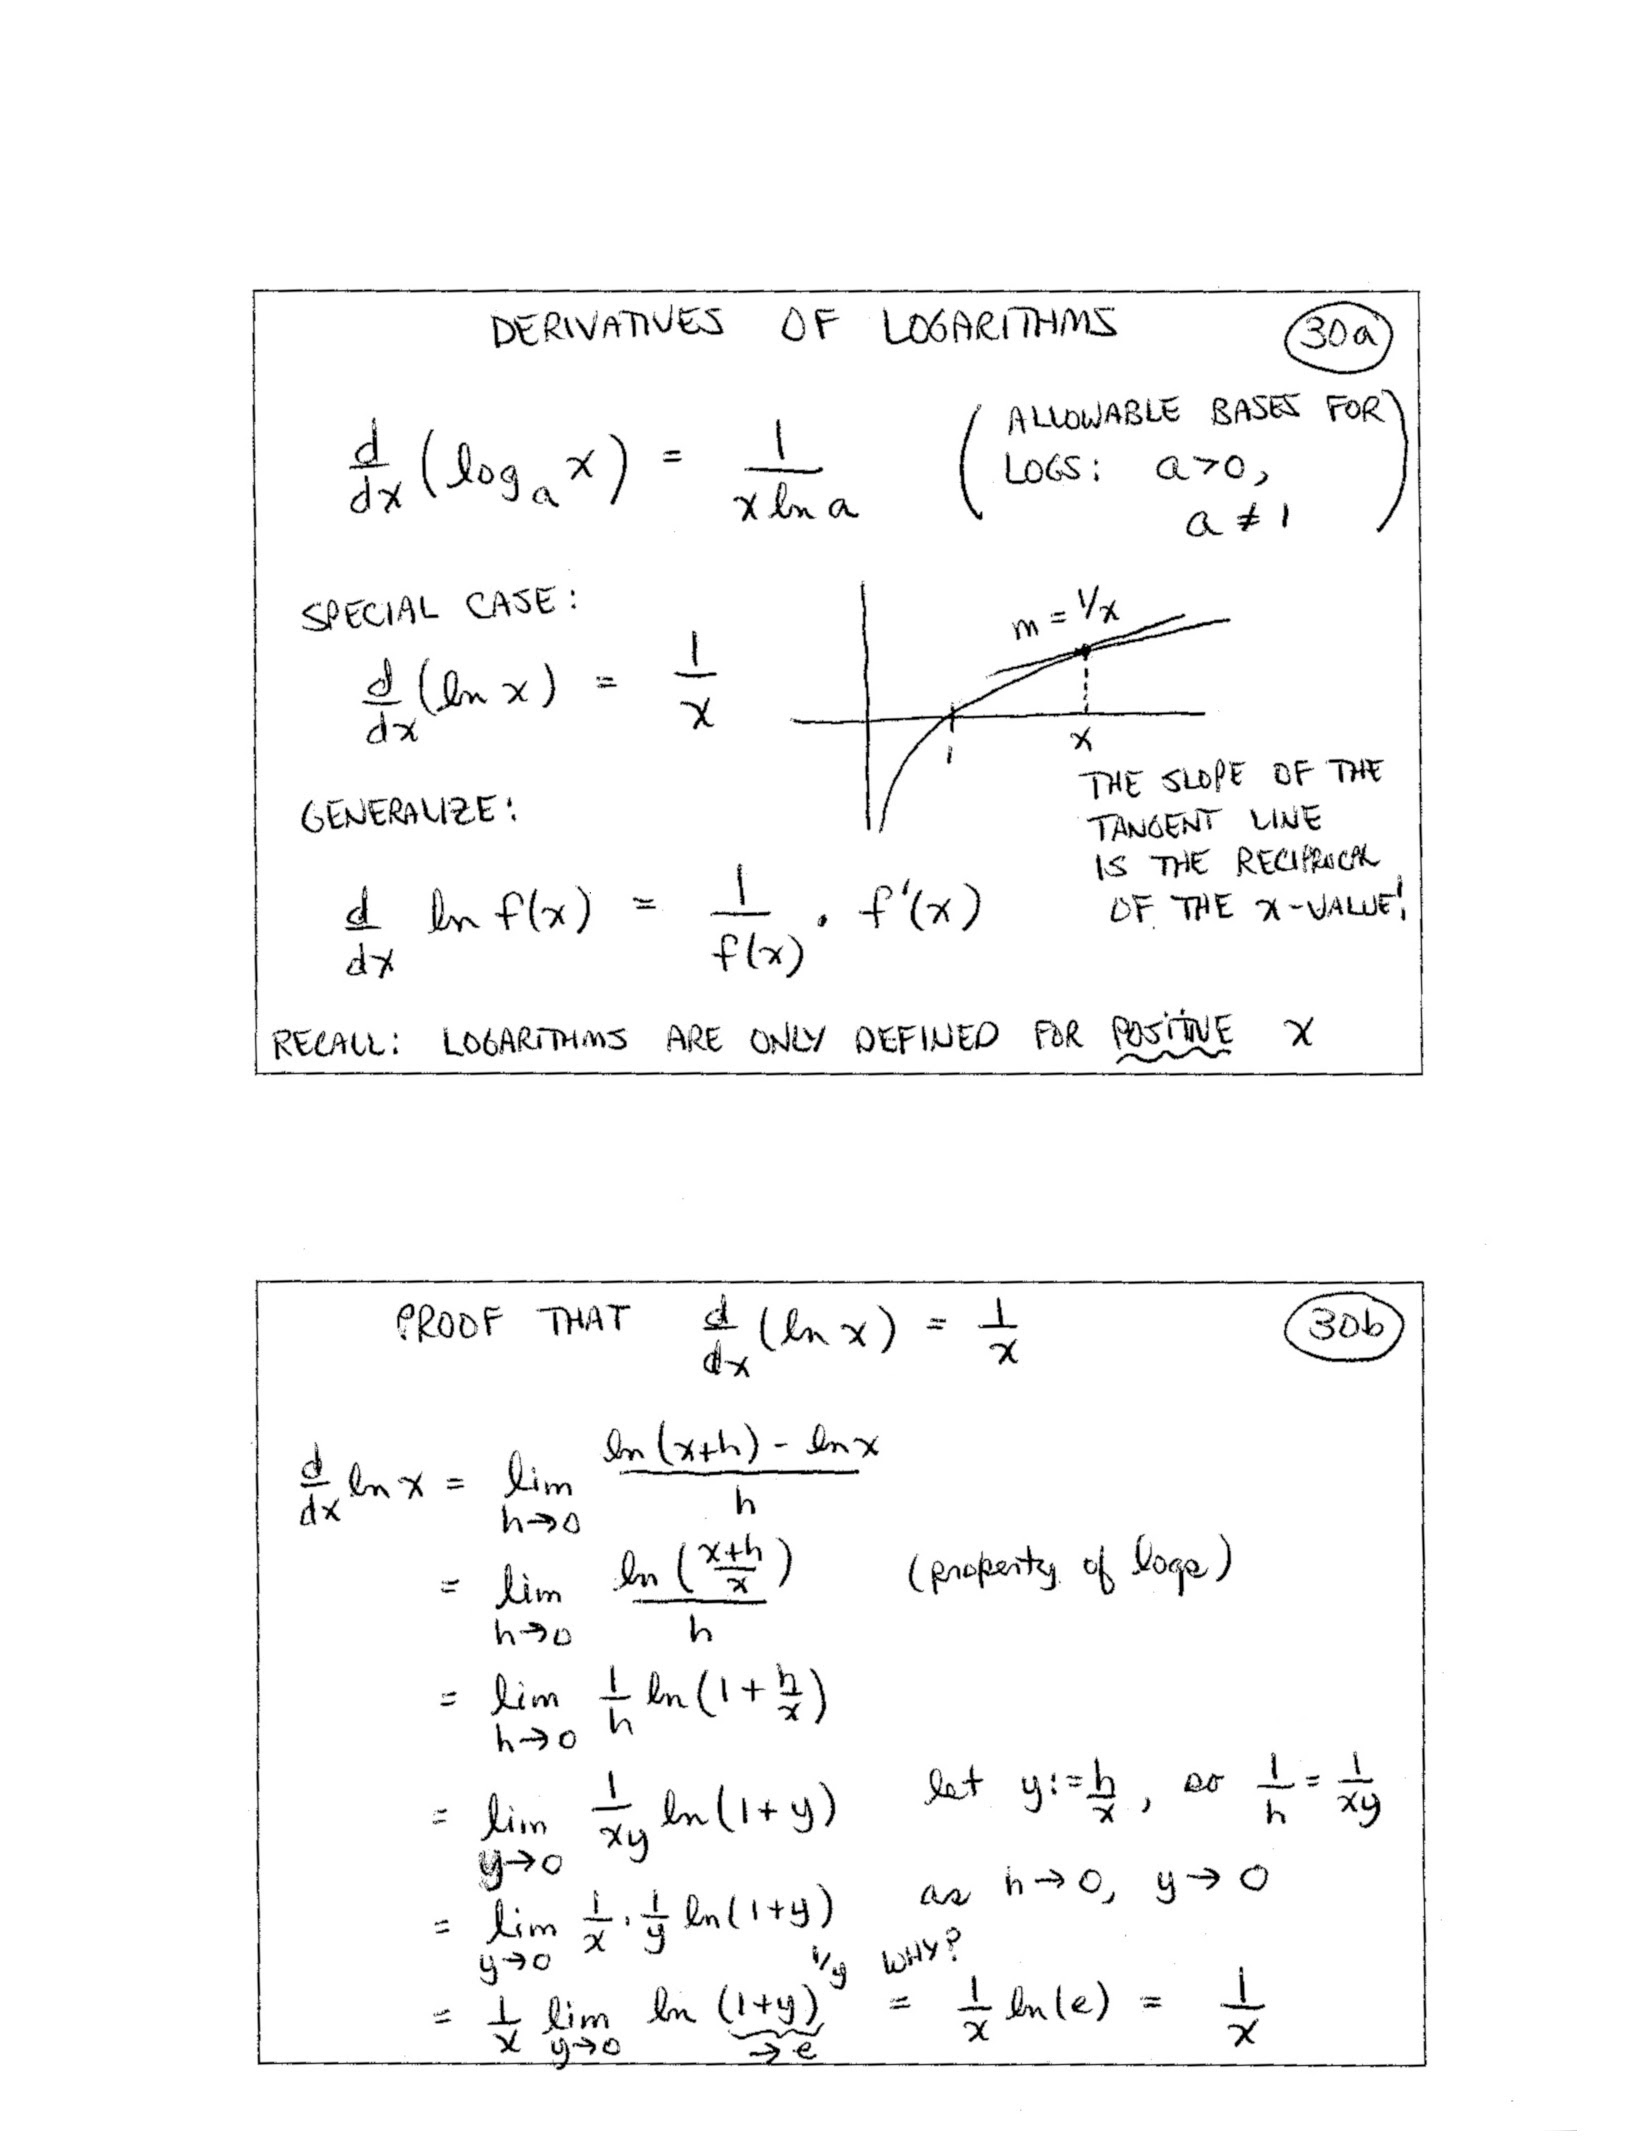 DERIVATIVES OF LOGARITHMS 30a
d/dx (log_a x) = 1/(x ln a) (ALLOWABLE BASES FOR
LOGS: a>0,
a ≠ 1)
SPECIAL CASE:
m = 1/x
d/dx (ln x) = 1/x
1 x
THE SLOPE OF THE
TANGENT LINE
IS THE RECIPROCAL
OF THE x-VALUE!
GENERALIZE:
d/dx ln f(x) = 1/f(x) · f'(x)
RECALL: LOGARITHMS ARE ONLY DEFINED FOR POSITIVE x
PROOF THAT d/dx (ln x) = 1/x 30b
d/dx ln x = lim h→0 (ln(x+h) - ln x)/h
= lim h→0 ln((x+h)/x)/h (property of logs)
= lim h→0 1/h ln(1 + h/x)
= lim y→0 1/(xy) ln(1+y) let y:=h/x, so 1/h = 1/(xy)
as h→0, y→0
= lim y→0 1/x · 1/y ln(1+y)
WHY?
= 1/x lim y→0 ln (1+y)^(1/y) = 1/x ln(e) = 1/x
→e